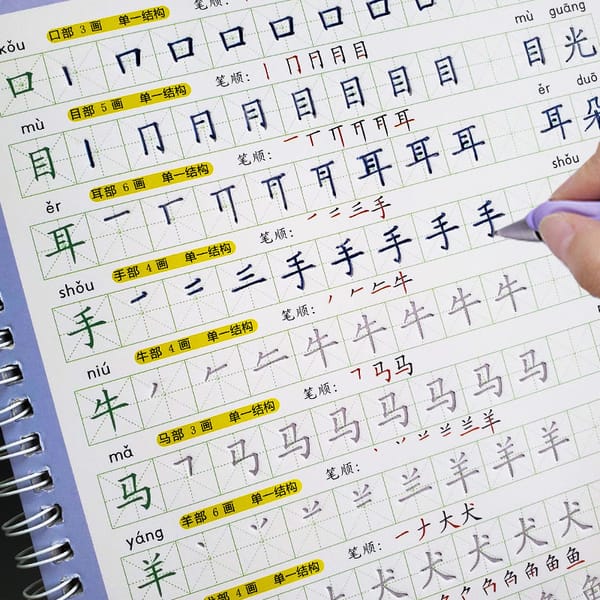 kǒu 口部 3 画 单一结构 笔顺:
口 丨 𠃍 口 口 口 口 口 口 mù guāng
mù 目部 5 画 单一结构 笔顺: 丨 冂 月 月 目
目 丨 冂 月 月 目 目 目 目 目 光
ěr 耳部 6 画 单一结构 笔顺: 一 丅 丌 耳 ěr duǒ
耳 一 丅 丌 耳 耳 耳 耳 朵
shǒu 手部 4 画 单一结构 笔顺: 一 二 三 手 shǒu
手 一 二 三 手 手 手 手 手
niú 牛部 4 画 单一结构 笔顺: 丿 𠂉 牛
牛 丿 𠂉 牛 牛 牛 牛 牛
mǎ 马部 3 画 单一结构 笔顺: 马 马
马 马 马 马 马 马 马 马
yáng 羊部 6 画 单一结构 笔顺: 丶 丷 羊
羊 丶 丷 羊 羊 羊 羊
4 画 单一结构 笔顺: 一 ナ 大 犬
犬 犬 犬 犬 犬
鱼